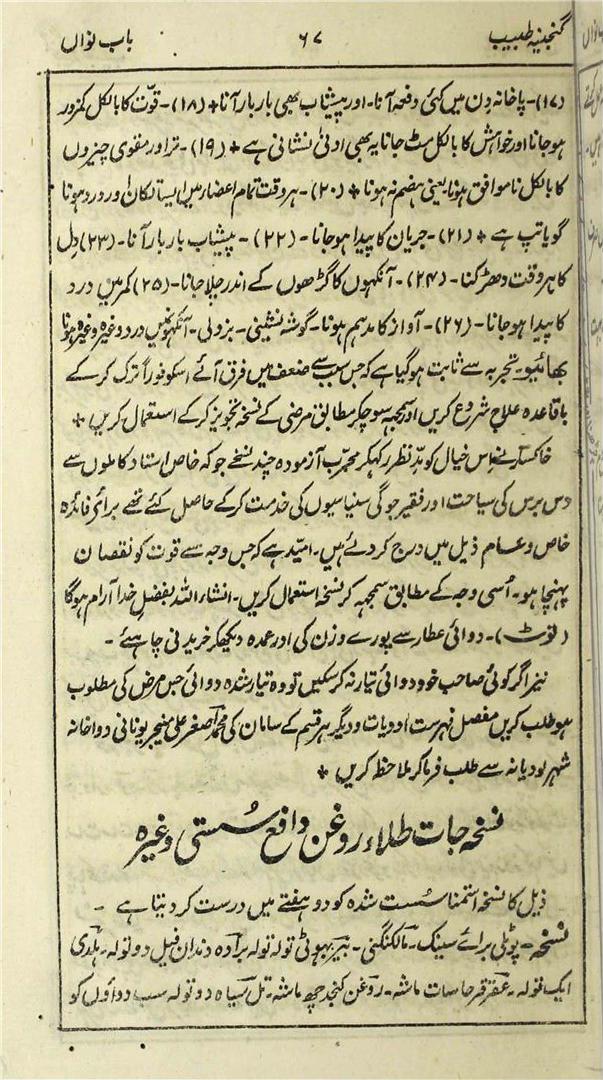 گنجینہ طبیب ۶۷ باب نواں
(۱۷)۔ پاخانہ دن میں کئی دفعہ آنا۔ اور پیشاب بھی بار بار آنا + (۱۸)۔ قوّت کا بالکل کمزور
ہو جانا اور خواہش کا بالکل مٹ جانا یہ بھی ادنیٰ نشانی ہے + (۱۹)۔ تر اور مقوی چیزوں
کا بالکل نا موافق ہونا یعنی ہضم نہ ہونا + (۲۰)۔ ہر وقت تمام اعضا میں ایسا تکان اور درد ہونا
گویا تپ ہے + (۲۱)۔ جریان کا پیدا ہو جانا۔ (۲۲)۔ پیشاب بار بار آنا۔ (۲۳) دل
کا ہر وقت دھڑکنا۔ (۲۴)۔ آنکہوں کا گڑھوں کے اندر چلا جانا۔ (۲۵) کمر میں درد
کا پیدا ہو جانا۔ (۲۶)۔ آواز کا مدہم ہونا۔ گوشہ نشینی۔ بزدلی۔ آنکہونمیں درد وغیرہ وغیرہ ہونا
بھائیو۔ تجربہ سے ثابت ہو گیا ہے کہ جس سبب سے ضعف میں فرق آئے اسکو فوراً ترک کر کے
باقاعدہ علاج شروع کریں اور سمجہہ سوچکر مطابق مرض کے نسخہ تجویز کر کے استعمال کریں +
خاکسار نے اس خیال کو مدِّ نظر رکہکر مجرّب آزمودہ چند نسخے جو کہ خاص استاد کاملوں سے
دس برس کی سیاحت اور فقیر جوگی سنیاسیوں کی خدمت کر کے حاصل کئے تھے برائے فائدہ
خاص و عام ذیل میں درج کر دئے ہیں۔ امّید ہے کہ جس وجہ سے قوت کو نقصان
پہنچا ہو۔ اُسی وجہ کے مطابق سمجہہ کر نسخہ استعمال کریں۔ انشاء اللہ بفضلِ خدا آرام ہوگا
(نوٹ)۔ دوائی عطار سے پورے وزن کی اور عمدہ دیکھکر خریدنی چاہئے۔
نیز اگر کوئی صاحب خود دوائی تیار نہ کر سکیں تو وہ تیار شدہ دوائی جس مرض کی مطلوب
ہو طلب کریں مفصل فہرست ادویات و دیگر ہر قسم کے سامان کی محمد اصغر علی منیجر یونانی دواخانہ
شہر لودیانہ سے طلب فرما کر ملاحظہ کریں +
نسخہ جات طلاء روغن دافع سُستی وغیرہ
ذیل کا نسخہ استمنا سُست شدہ کو دو ہفتے میں درست کر دیتا ہے۔
نسخہ۔ پوٹلی برائے سینک۔ مالکنگنی۔ بیر بہوٹی تولہ تولہ برادہ دندان فیل دو تولہ۔ ہلدی
ایک تولہ۔ عقرقرحا سات ماشہ۔ روغن کنجد چھ ماشہ۔ تل سیاہ دو تولہ سب دواؤں کو